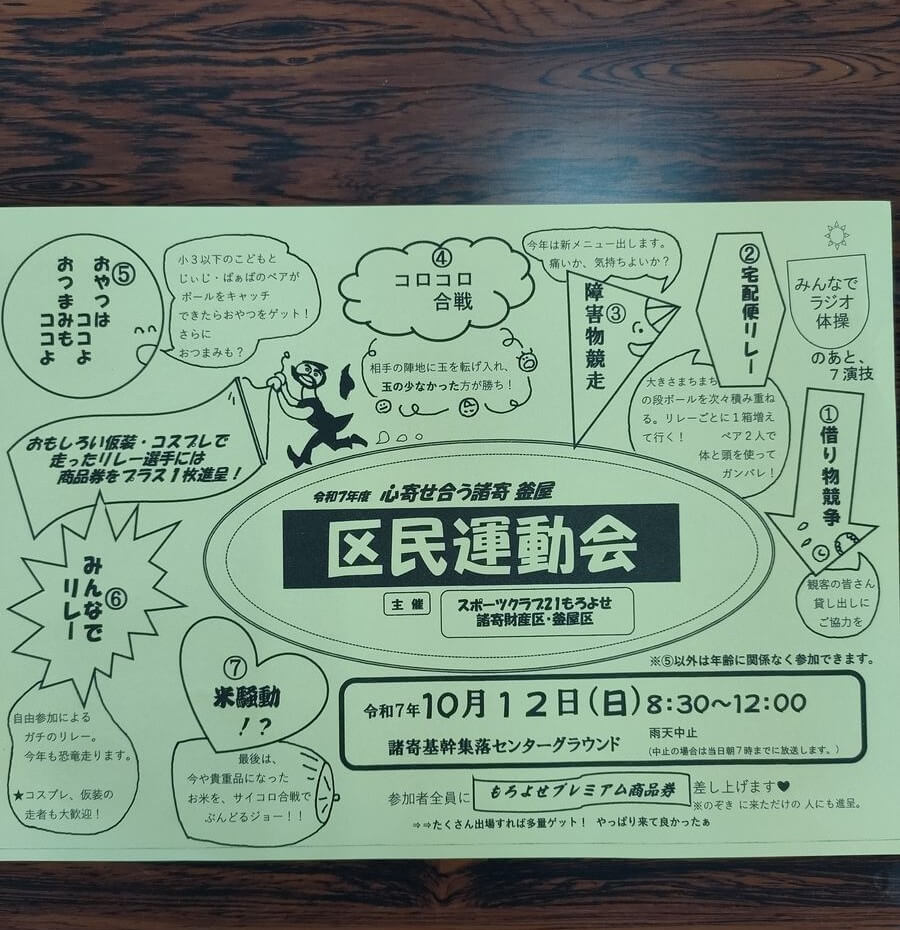 令和7年度 心寄せ合う諸寄 釜屋
区民運動会
主催
スポーツクラブ21もろよせ
諸寄財産区・釜屋区
みんなで
ラジオ
体操
のあと、
7演技
①借り物競争
観客の皆さん
貸し出しに
ご協力を
②宅配便リレー
大きさまちまち
の段ボールを次々積み重ね
る。リレーごとに1箱増え
て行く! ペア2人で
体と頭を使って
ガンバレ!
今年は新メニュー出します。
痛いか、気持ちよいか?
③障害物競走
④
コロコロ
合戦
相手の陣地に玉を転げ入れ、
玉の少なかった方が勝ち!
⑤
おやつは
ココよ
おつまみも
ココよ
小3以下のこどもと
じぃじ・ばぁばのペアが
ボールをキャッチ
できたらおやつをゲット!
さらに
おつまみも?
おもしろい仮装・コスプレで
走ったリレー選手には
商品券をプラス1枚進呈!
⑥
みんなで
リレー
自由参加による
ガチのリレー。
今年も恐竜走ります。
★コスプレ、仮装の
走者も大歓迎!
⑦
米騒動
!?
最後は、
今や貴重品になった
お米を、サイコロ合戦で
ぶんどるジョー!!
※⑤以外は年齢に関係なく参加できます。
令和7年10月12日(日)8:30～12:00
諸寄基幹集落センターグラウンド
雨天中止
(中止の場合は当日朝7時までに放送します。)
参加者全員に もろよせプレミアム商品券 差し上げます♥
※のぞき に来ただけの 人にも進呈。
⇒⇒たくさん出場すれば多量ゲット! やっぱり来て良かったぁ